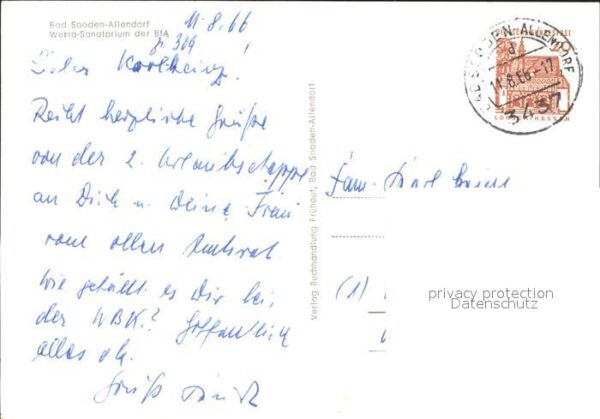 Bad Sooden-Allendorf
Werra-Sanatorium der BfA
11.8.66
Lieber Karlheinz!
Recht herzliche Grüße
von der 2. Urlaubsetappe
an Dich u. Deine Frau
vom ollen
Wie gefällt es Dir bei
der WBK? Hoffentlich
alles ok.
Gruß
Verlag Buchhandlung Frühauf, Bad Sooden-Allendorf
DEUTSCHE BUNDESPOST
LORSCH/HESSEN
BAD SOODEN-ALLENDORF
d
11.8.66-17
3437
Fam. Karl Heinz
(1)
privacy protection
Datenschutz